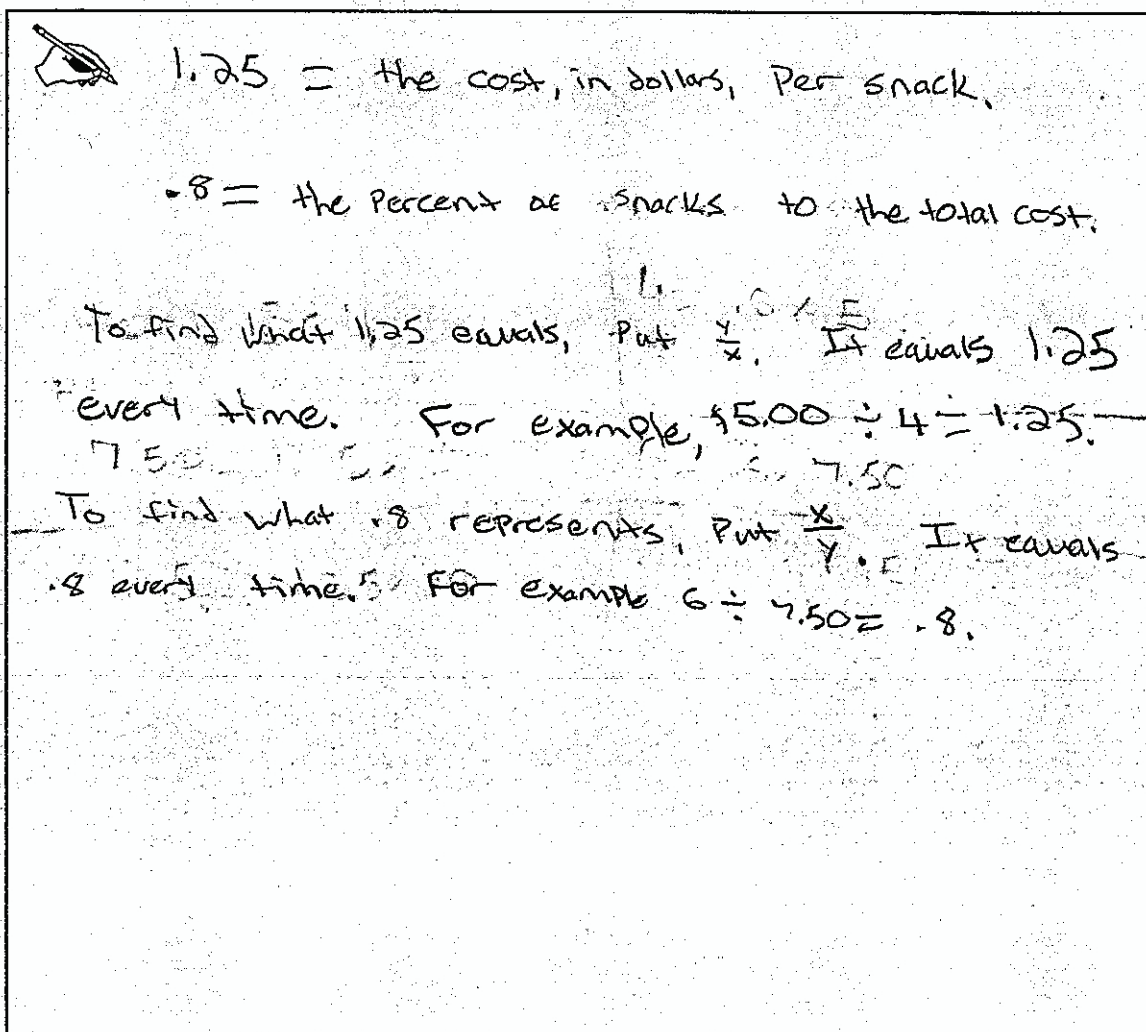 1.25 = the cost, in dollars, Per snack.
.8 = the Percent of snacks to the total cost.
To find what 1.25 equals, Put y/x. It equals 1.25
every time. For example, $5.00 ÷ 4 = 1.25.
To find what .8 represents, Put x/y. It equals
.8 every time. For example 6 ÷ 7.50 = .8.